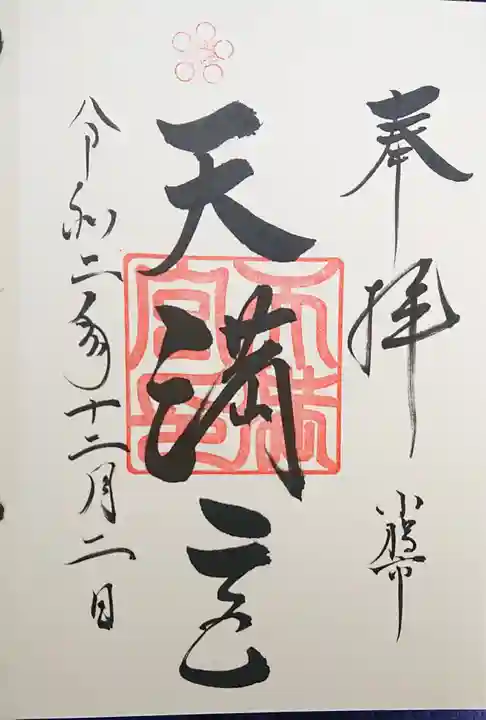 奉拝
小樽市
天満宮
令和二年十二月二日